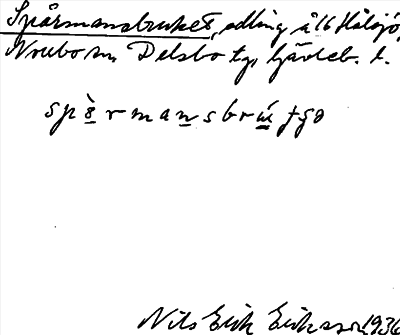 Spårmansbruket, odling å 16 Hålsjö,
Norrbo sn, Delsbo tg, Gävleb. l.
Nils Erik Eriksson 1936